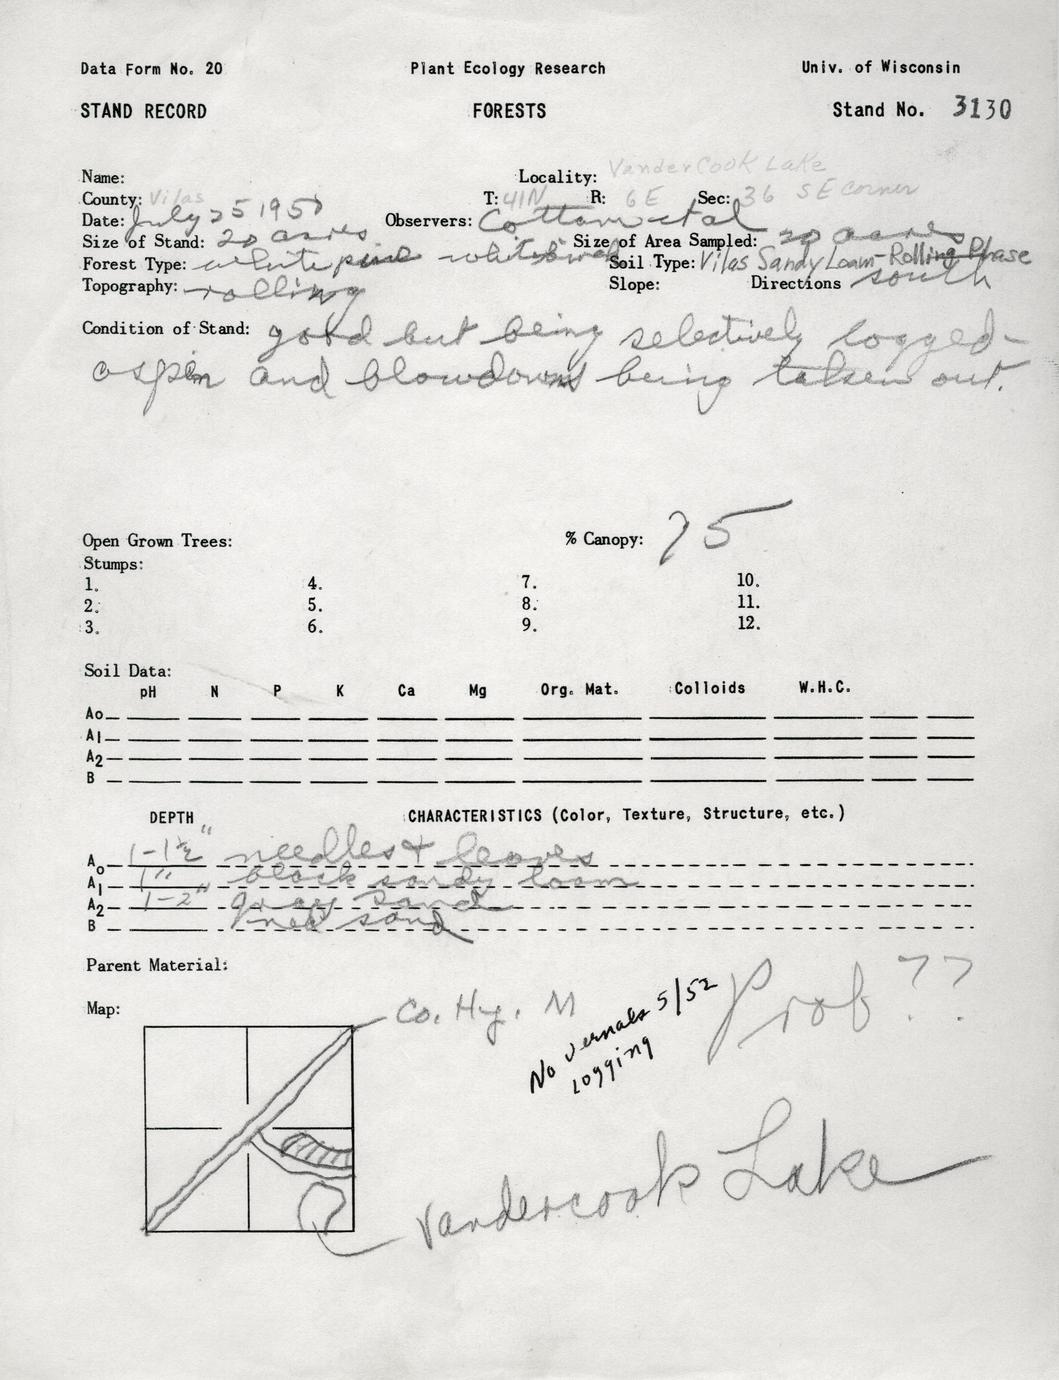 Data Form No. 20 Plant Ecology Research Univ. of Wisconsin
STAND RECORD FORESTS Stand No. 3130
Name: Locality: VanderCook Lake
County: Vilas T: 41N R: 6E Sec: 36 SE corner
Date: July 25 1950 Observers: Cottam et al
Size of Stand: 20 acres Size of Area Sampled: 20 acres
Forest Type: white pine white birch Soil Type: Vilas Sandy Loam-Rolling Phase
Topography: rolling Slope: Directions south
Condition of Stand: good but being selectively logged-
aspen and blowdowns being taken out.
Open Grown Trees: % Canopy: 75
Stumps:
1. 4. 7. 10.
2. 5. 8. 11.
3. 6. 9. 12.
Soil Data:
pH N P K Ca Mg Org. Mat. Colloids W.H.C.
Ao
A1
A2
B
DEPTH CHARACTERISTICS (Color, Texture, Structure, etc.)
Ao 1-1½" needles + leaves
A1 1" black sandy loam
A2 1-2" gray sand
B red sand
Parent Material:
Map: Co. Hy. M
No vernals 5/52
logging
Prob ??
Vandercook Lake